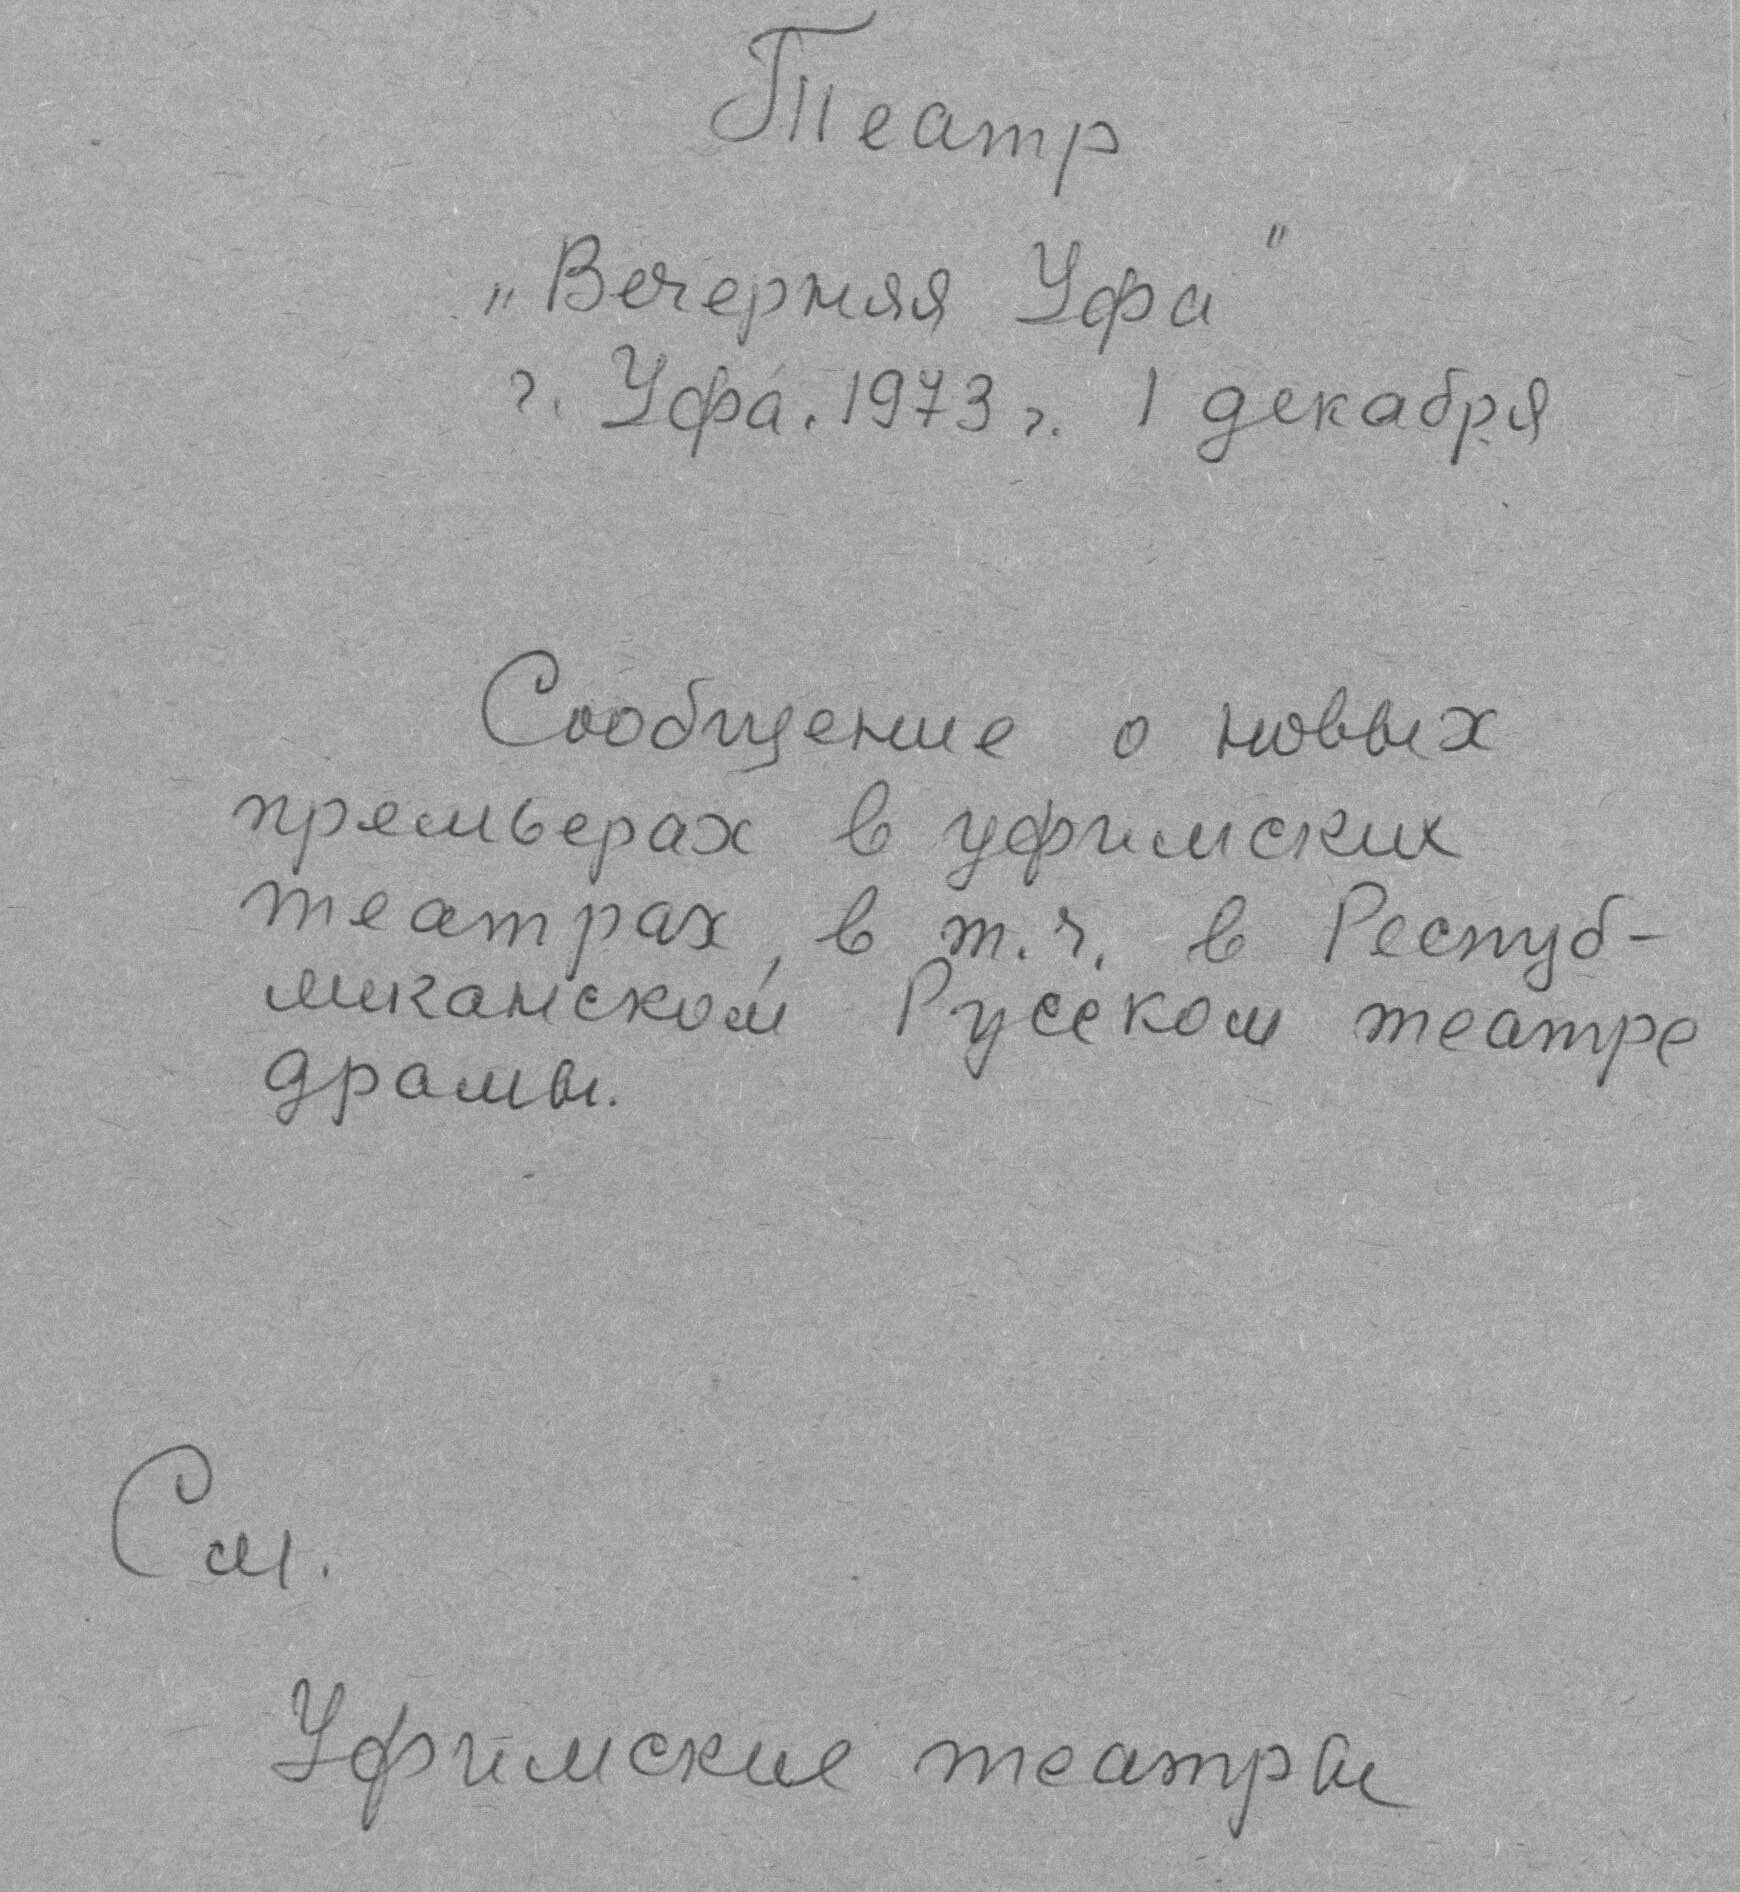 Театр
„Вечерняя Уфа"
г. Уфа. 1973 г. 1 декабря
Сообщение о новых
премьерах в уфимских
театрах, в т.ч. в Респуб-
ликанском Русском театре
драмы.
См.
Уфимские театры